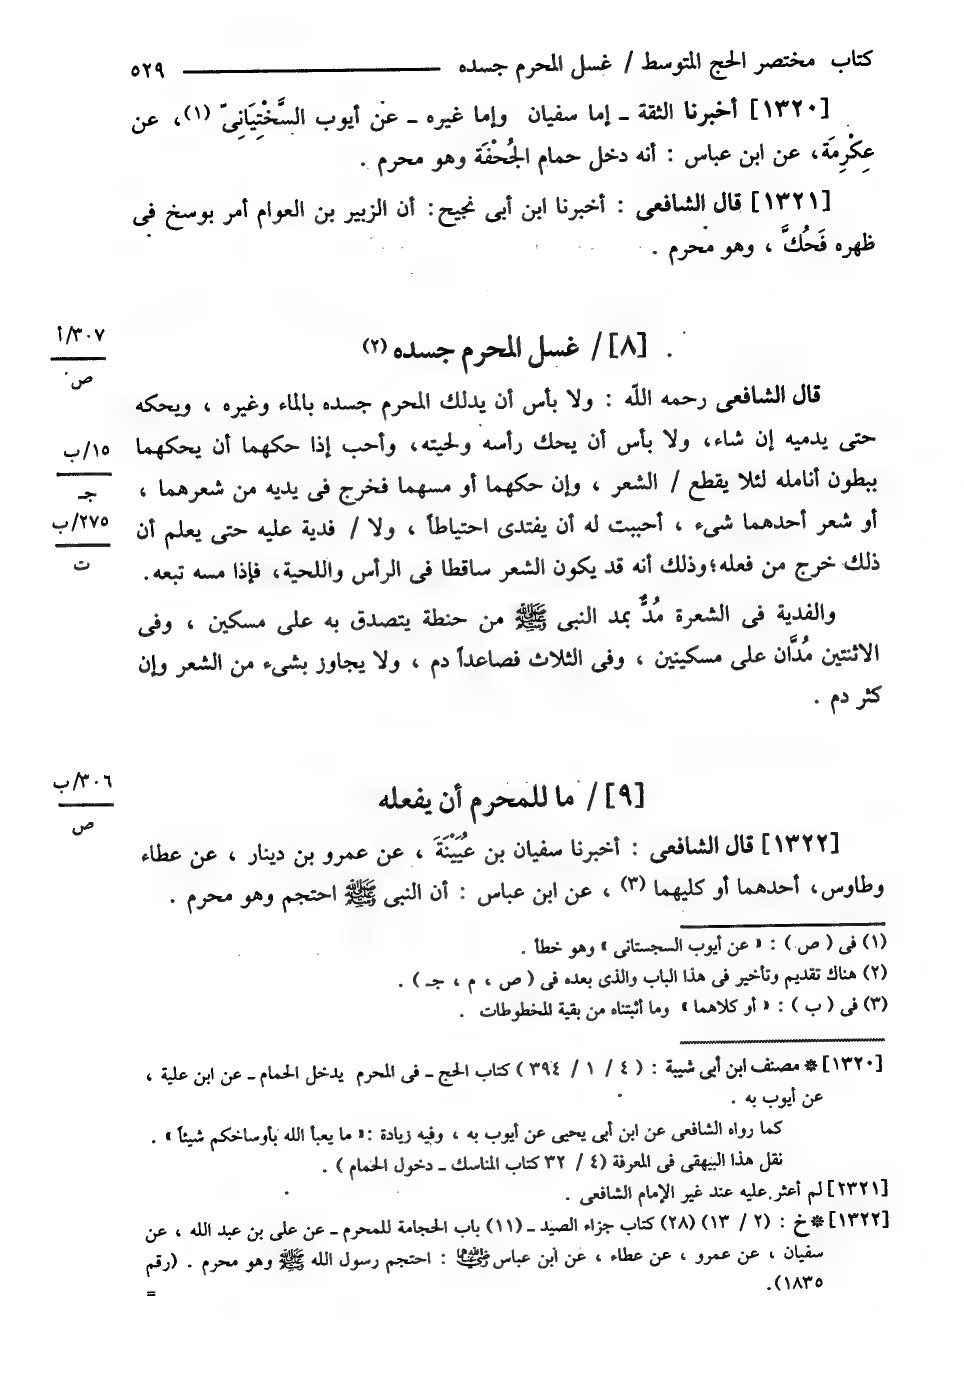 كتاب مختصر الحج المتوسط / غسل المحرم جسده ٥٢٩
[١٣٢٠] أخبرنا الثقة ـ إما سفيان وإما غيره ـ عن أيوب السَّخْتِيَانِىّ (١)، عن
عِكْرِمَة، عن ابن عباس : أنه دخل حمام الجُحْفَة وهو محرم .
[١٣٢١] قال الشافعى : أخبرنا ابن أبى نجيح : أن الزبير بن العوام أمر بوسخ فى
ظهره فَحُكَّ ، وهو محرم .
٣٠٧/أ
ص
[٨] / غسل المحرم جسده (٢)
قال الشافعى رحمه الله : ولا بأس أن يدلك المحرم جسده بالماء وغيره ، ويحكه
حتى يدميه إن شاء، ولا بأس أن يحك رأسه ولحيته، وأحب إذا حكهما أن يحكهما
١٥/ب
جـ
ببطون أنامله لئلا يقطع / الشعر ، وإن حكهما أو مسهما فخرج فى يديه من شعرهما ،
أو شعر أحدهما شىء ، أحببت له أن يفتدى احتياطاً ، ولا / فدية عليه حتى يعلم أن
٢٧٥/ب
ت
ذلك خرج من فعله؛ وذلك أنه قد يكون الشعر ساقطا فى الرأس واللحية، فإذا مسه تبعه.
والفدية فى الشعرة مُدٌّ بمد النبى ﷺ من حنطة يتصدق به على مسكين ، وفى
الاثنتين مُدَّان على مسكينين ، وفى الثلاث فصاعداً دم ، ولا يجاوز بشىء من الشعر وإن
كثر دم .
٣٠٦/ب
ص
[٩] / ما للمحرم أن يفعله
[١٣٢٢] قال الشافعى : أخبرنا سفيان بن عُيَيْنَةَ ، عن عمرو بن دينار ، عن عطاء
وطاوس، أحدهما أو كليهما (٣) ، عن ابن عباس : أن النبى ﷺ احتجم وهو محرم .
(١) فى ( ص ) : « عن أيوب السجستانى » وهو خطأ .
(٢) هناك تقديم وتأخير فى هذا الباب والذى بعده فى ( ص ، م ، جـ ) .
(٣) فى ( ب ) : « أو كلاهما » وما أثبتناه من بقية المخطوطات .
[١٣٢٠] * مصنف ابن أبى شيبة : ( ٤ / ١ / ٣٩٤ ) كتاب الحج ـ فى المحرم يدخل الحمام ـ عن ابن علية ،
عن أيوب به .
كما رواه الشافعى عن ابن أبى يحيى عن أيوب به ، وفيه زيادة : « ما يعبأ الله بأوساخكم شيئاً » .
نقل هذا البيهقى فى المعرفة (٤ / ٣٢ كتاب المناسك ـ دخول الحمام ) .
[١٣٢١] لم أعثر عليه عند غير الإمام الشافعى .
[١٣٢٢] * خ : (٢ / ١٣) (٢٨) كتاب جزاء الصيد ـ (١١) باب الحجامة للمحرم ـ عن على بن عبد الله ، عن
سفيان ، عن عمرو ، عن عطاء ، عن ابن عباس رضي الله عنهما : احتجم رسول الله ﷺ وهو محرم . (رقم
١٨٣٥).
=